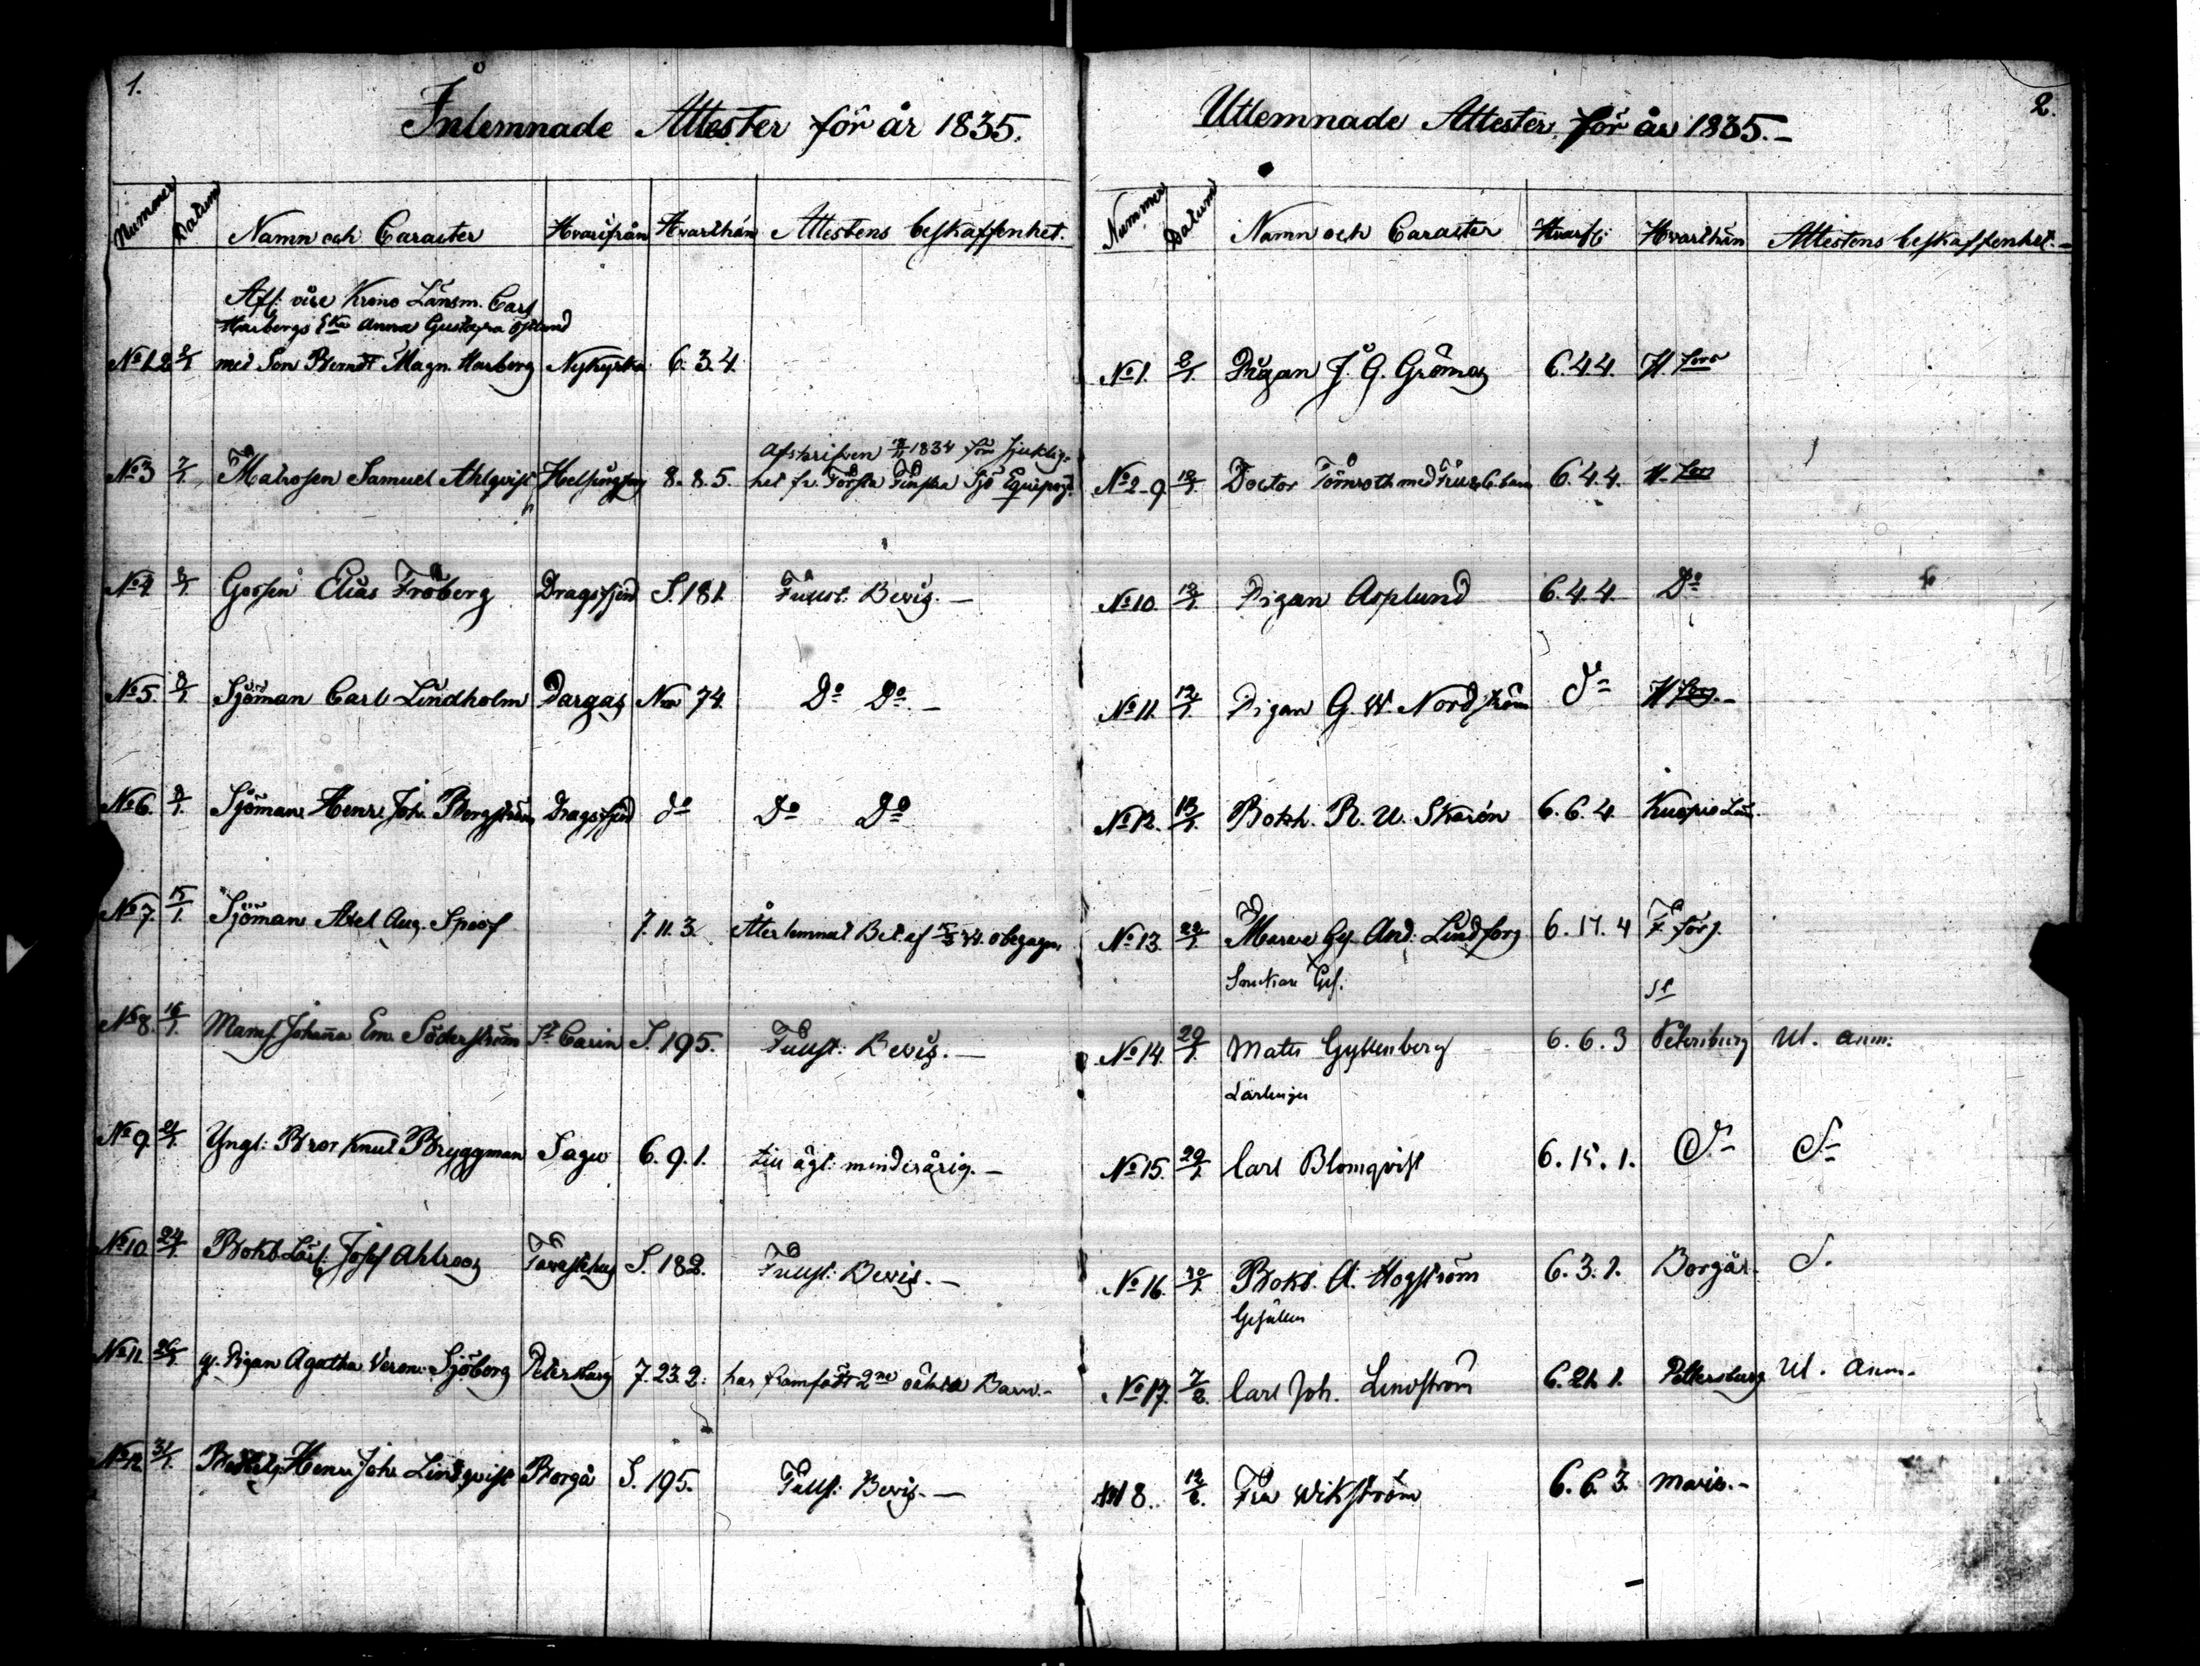 1.
Inlemnade Attester för år 1835.
Nummer Datum Namn och Caracter Hvarifrån Hvarthän Attestens beskaffenhet.
Afl: vice Krono Länsm. Carl
Harbergs Eka Anna Gustafva
No 1.2 2/1 med Son Berndt Magn. Harberg Nykyrka 6.3.4.
Afskrifven 1834 för sjuklig-
No 3 7/1 Matrosen Samuel Ahlqvist Helsingfors 8.8.5. het fr. Första Finska Sjö Equipag.
No 4 8/1 Gossen Elias Fröberg Dragsfjerd S. 181. Fullst: Bevis. —
No 5. 8/1 Sjöman Carl Lindholm Pargas Nya 74. Do Do. —
No 6. 8/1 Sjöman Henr. Joh. Bergström Dragsfjerd do Do Do
No 7. 15/1. Sjöman Axel Aug. Spoof 7.11.3. Återlemnat Bet. af obegagn.
No 8. 16/1. Mams. Johanna Em. Söderström St Carin S. 195. Fullst: Bevis. —
No 9. 21/1. Yngl: Bror Knut Bryggman Sagu 6.9.1. till ågl: minderårig. —
No 10 24/1. Bokb. Lärl: Josef Ahlroos Tavastehus S. 182. Fullst: Bevis. —
No 11. 26/1. gl. Pigan Agatha Veron: Sjöberg Petersburg 7.23.2: har framfödt 2ne oäkta Barn. -
No 12 31/1. Henr. Joh. Lindqvist Borgå S. 195. Fullst: Bevis. —
2.
Utlemnade Attester för år 1835. —
Nummer Datum Namn och Caracter Hvarfr: Hvarthän Attestens beskaffenhet. —
No 1. 2/1. Pigan J. G. Grönroos 6.4.4. H.fors
No 2-9 12/1. Doctor Törnroth med Fru & 6 barn 6.4.4. H.fors
No 10 12/1. Pigan Asplund 6.4.4. Do
No 11. 12/1. Pigan G. W. Nordström do H.fors. -
No 12. 13/1. Bokh. R. U. Skarén 6.6.4. Kuopio Län.
No 13. 22/1. And. Lindfors 6.17.4 F.fors.
Snickare Ges. St
No 14. 29/1. Mats Gyllenberg 6.6.3 Petersburg Ut. anm:
Lärlingen
No 15. 29/1. Carl Blomqvist 6.15.1. do do
No 16. 30/1. Bokb. A. Hogström 6.3.1. Borgå. d.
Gesällen
No 17. 7/2. Carl Joh. Lindström 6.21.1. Pettersburg Ut. Anm.
No 18. 12/2. Fru Wikström 6.6.3. Marie. -